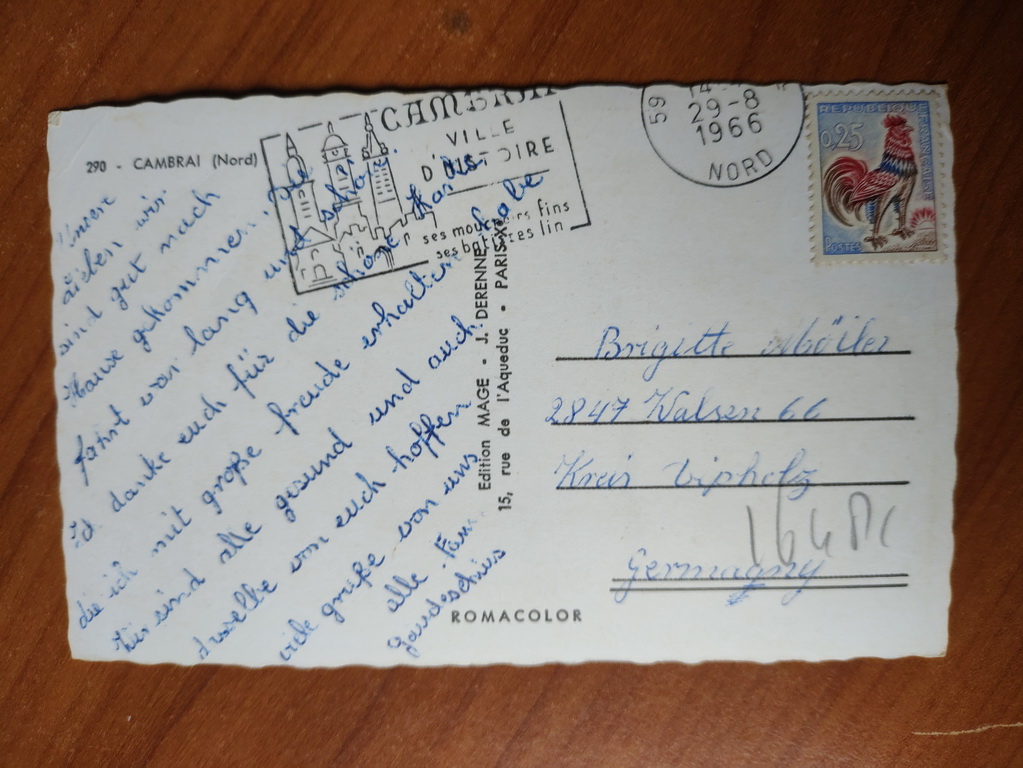 290 - CAMBRAI (Nord)
CAMBRAI
VILLE
D'HISTOIRE
ses mouchoirs fins
ses batistes lin
59
29-8
1966
NORD
REPUBLIQUE FRANÇAISE
0,25
POSTES
Unsere
lieben wir
sind gut nach
Hause gekommen. Die
Fahrt war lang und schön.
Ich danke euch für die schöne Karte
die ich mit große freude erhalten habe
Wir sind alle gesund und auch
dasselbe von euch hoffen
viele grüße von uns
alle. Fam.
Edition MAGE • J. DERENNE • PARIS
15, rue de l'Aqueduc
ROMACOLOR
Brigitte
2847 Walsen 66
Kreis Dipholz
Germagny